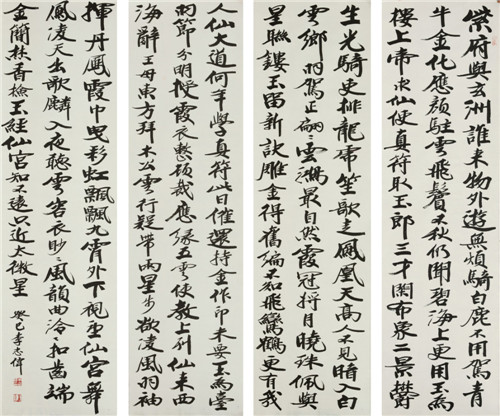 紫府與玄洲誰来物外遊無煩騎白鹿不用駕青
牛金化應顏駐雲飛鬢不秋仍聞碧海上更用玉為
樓上帝求仙使真符取玉郎三才闲布象二景鬱
生光騎吏排龍虎笙歌走鳳凰天高人不見時入白
雲鄉羽駕正翩翩雲鴻最自然霞冠将月曉珠佩與
星聯鏤玉留新訣雕金得舊編不知飛鸞鶴更有
人仙大道何年學真符此日催還持金作印未要玉為臺
羽節分明授霞衣整頓裁應緣五雲使教上列仙来西
海辭王母東方拜木公雲行疑帶雨星步欲凌風羽袖
揮丹鳳霞巾曳彩虹飄飄九霄外下視望仙宫舞
鳳凌天出歌麟入夜聽雲容衣眇眇風韻曲泠泠扣齒端
金簡焚香檢玉経仙宫知不遠只近太微星 癸巳李志偉